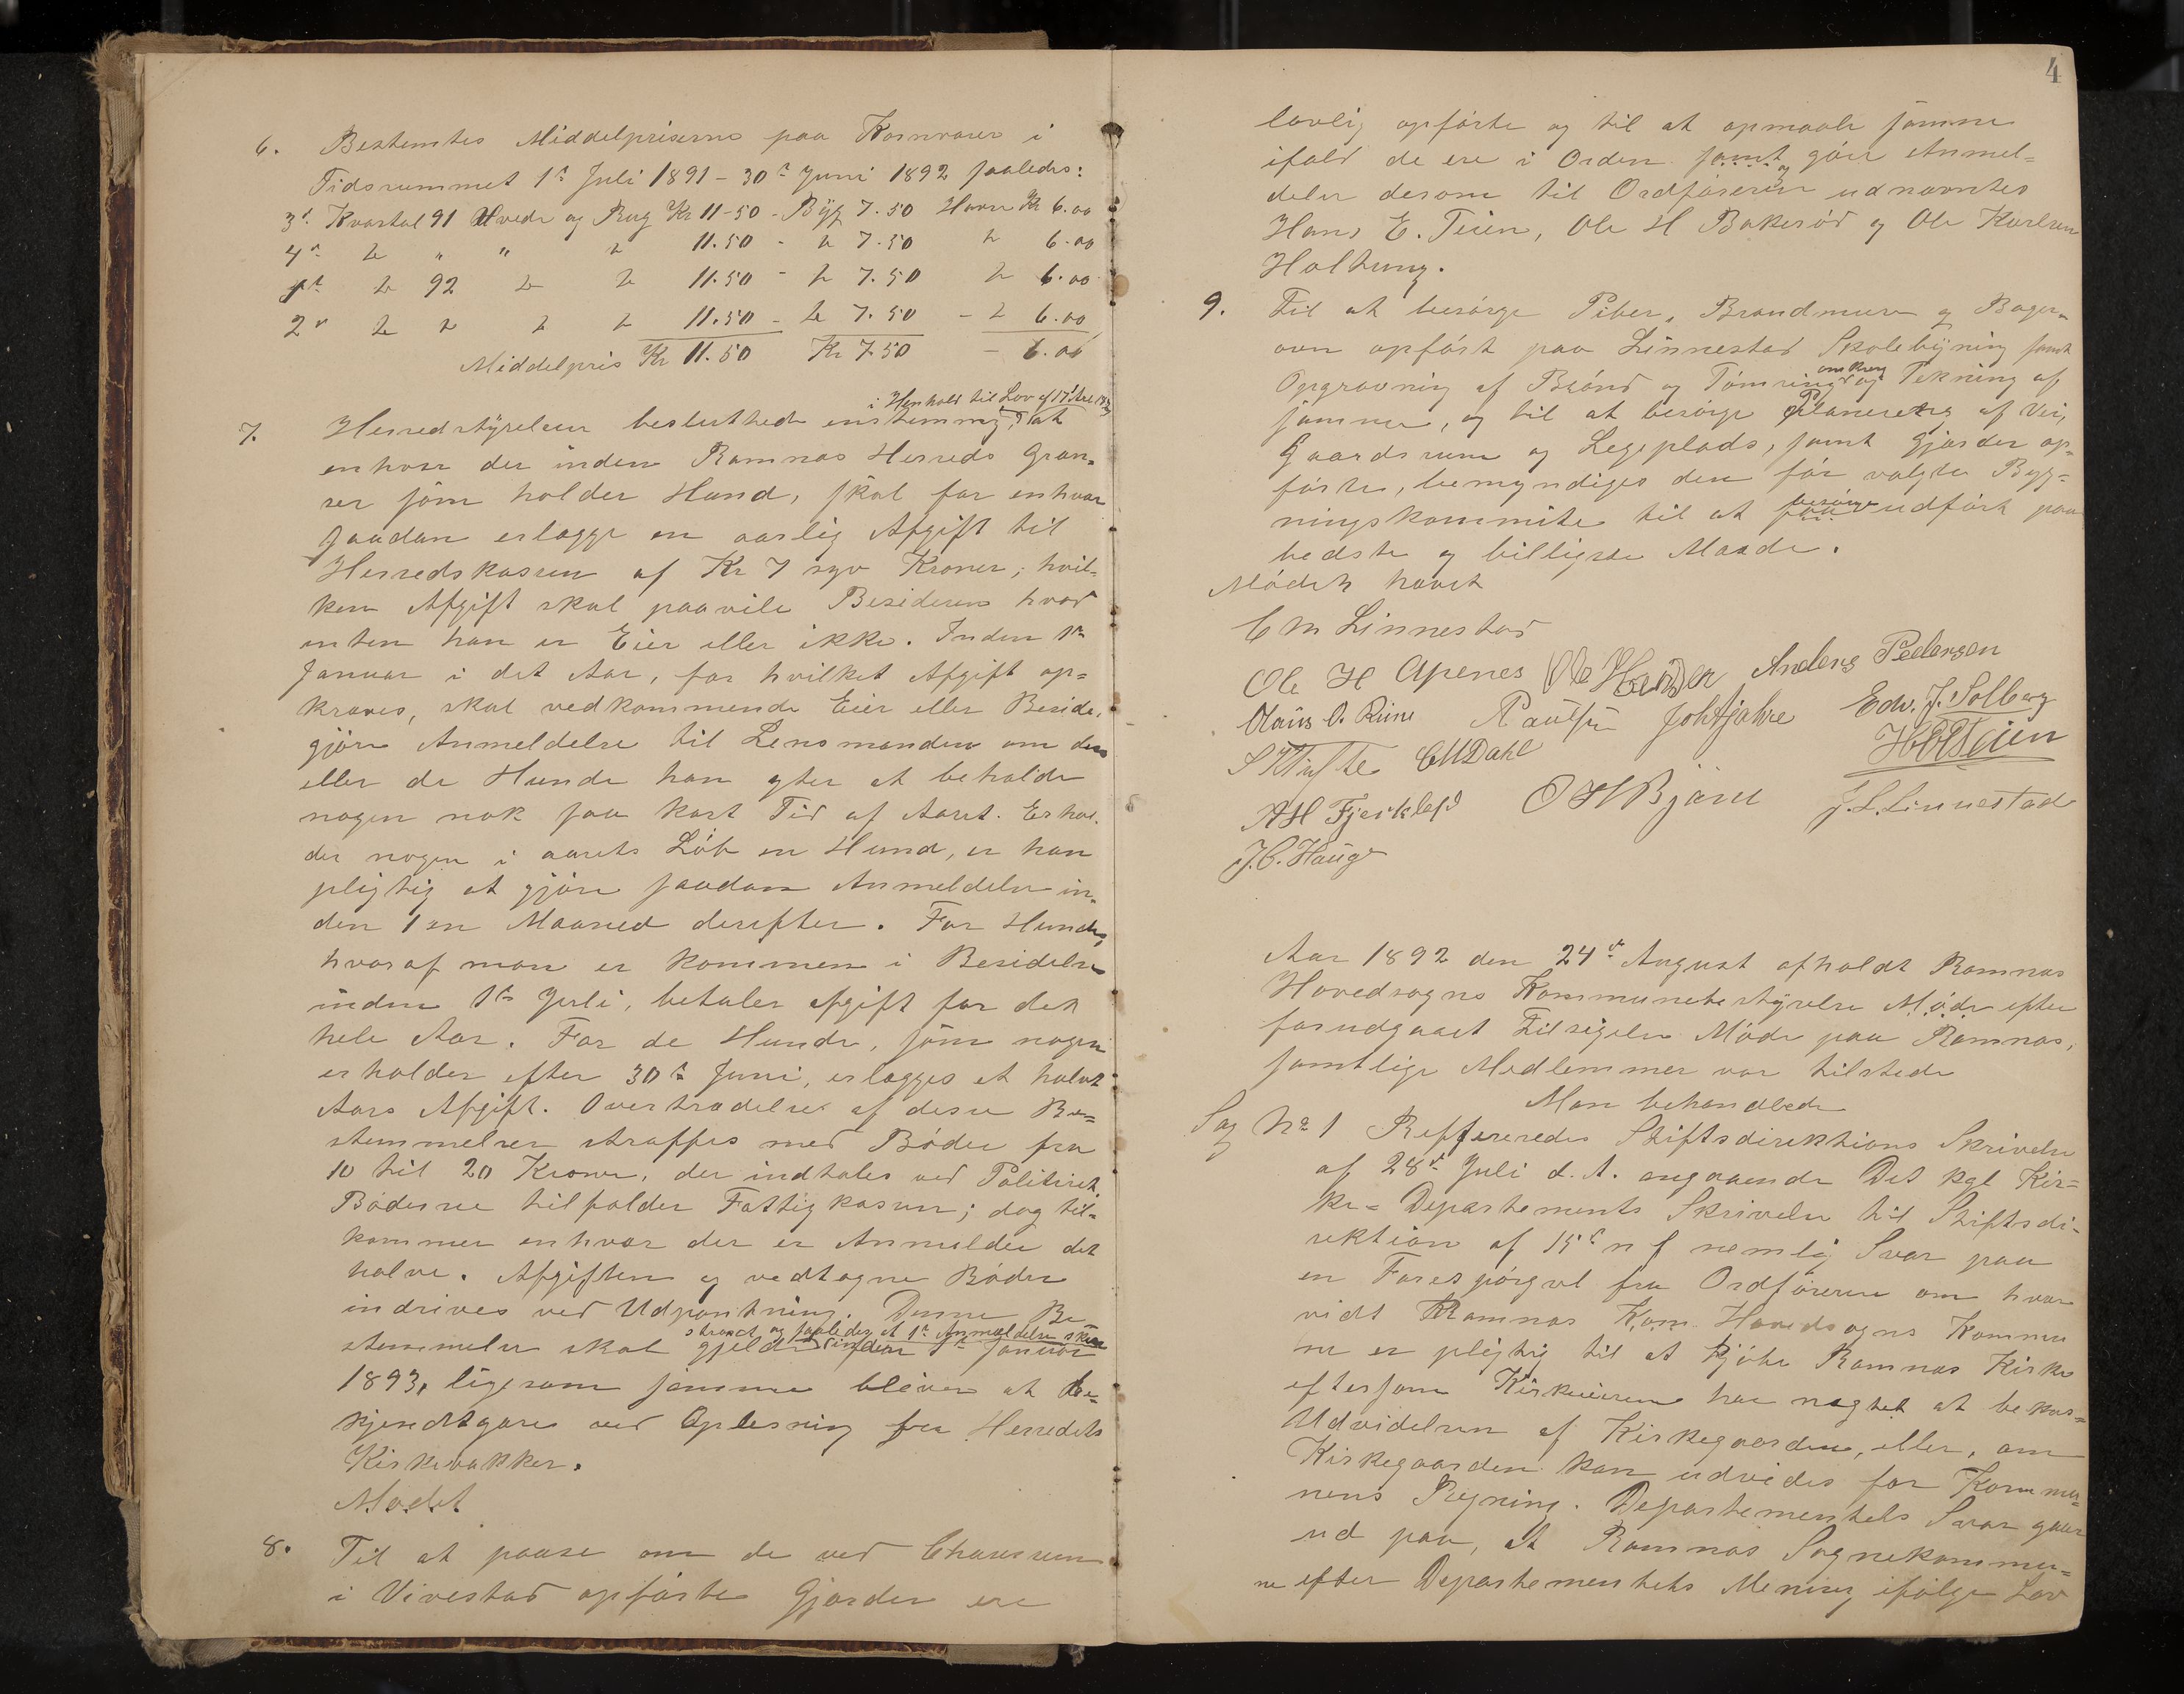 6. Bestemtes Middelpriserne paa Kornvarer i
Tidsrummet 1ste Juli 1891 – 30te Juni 1892 saaledes:
3die Kvartal 91 Hvede og Rug Kr 11-50 - Byg 7.50 Havre Kr 6.00
4de " " " " 11.50 - " 7.50 " 6.00
1ste " 92 " " 11.50 - " 7.50 " 6.00
2det " " " " 11.50 - " 7.50 - " 6.00
Middelpris Kr 11.50 Kr 7.50 - 6.00
i Henhold til Lov af 17de
7. Herredstyrelsen besluttede enstemmig, at
enhver der inden Ramnæs Herreds Græn-
ser som holder Hund, skal for enhver
saadan erlægge en aarlig Afgift til
Herredskassen af Kr 7 syv Kroner; hvil-
ken Afgift skal paavile Besidderen hvad
enten han er Eier eller ikke. Inden 1ste
Januar i det Aar, for hvilket Afgift op-
kræves, skal vedkommende Eier eller Besidder
gjøre Anmeldelse til Lensmanden om den
eller de Hunde han agter at beholde
nogen nok saa kort Tid af Aaret. Erhol-
der nogen i aarets Løb en Hund, er han
pligtig at gjøre saadan Anmeldelse in-
den 1 en Maaned derefter. For Hunde,
hvoraf man er kommen i Besiddelse
inden 1ste Juli, betales afgift for det
hele Aar. For de Hunde, som nogen
erholder efter 30te Juni, erlægges et halvt
Aars Afgift. Overtrædelse af disse Be-
stemmelser straffes med Bøder fra
10 til 20 Kroner, der indtales ved Politiret.
Bøderne tilfalder Fattigkassen; dog til-
kommer enhver der er Anmelder det
halve. Afgiften og vedtagne Bøder
inddrives ved Udpantning. Denne Be-
strax og saaledes at 1ste Anmeldelse sker
stemmelse skal gjelde inden 1ste Januar
1893, ligesom samme bliver at be-
kjendtgøre ved Oplesning fra Herredets
Kirkebakker.
Mødet
8. Til at paase om de ved Chauseen
i Vivestad opførte Gjærder ere
4
lovlig opførte og til at opmaale samme
ifald de ere i Orden samt og gøre Anmel-
delse derom til Ordføreren udnævntes
Hans E. Teien, Ole H Bakerød og Ole Karlsen
Holtung.
9. Til at besørge Piber, Brandmure og Bager-
ovn opført paa Linnestad Skolebygning samt
Opgravning af Brønd og Tømring omkring og Tekning af
samme, og til at besørge Planering af Vei,
Gaardsrum og Legeplads, samt Gjærder op-
førte, bemyndiges den før valgte Byg-
ningskommite til at faa besørge udført paa
bedste og billigste Maade.
Mødet hævet
C M Linnestad
Ole H Apenes Anders Pedersen
Olaus O. Riine Paulsen Edv. J. Solberg
C M Dahl
O H Bjære J. L. Linnestad
J. C. Hauge
Aar 1892 den 24de August afholdt Ramnæs
Hovedsogns Kommunebestyrelse Møde efter
forudgaaet Tilsigelse Møde paa Ramnæs,
samtlige Medlemmer var tilstede
Man behandlede
Sag No 1 Reffereredes Stiftsdirektions Skrivelse
af 28de Juli d. A. angaaende Det kgl Kir-
ke-Departements Skrivelse til Stiftsdi-
rektion af 15de n f nemlig Svar paa
en Forespørgsel fra Ordføreren om hvor
vidt Ramnæs Kom. Hovedsogns Kommu
ne er pligtig til at kjøbe Ramnæs Kirke
eftersom Kirkeeieren har nægtet at bekos-
Udvidelsen af Kirkegaarden, eller, om
Kirkegaarden kan udvides for Kommu-
nens Regning. Departementets Svar gaar
ud paa, at Ramnæs Sognekommu-
ne efter Departementets Mening ifølge Lov